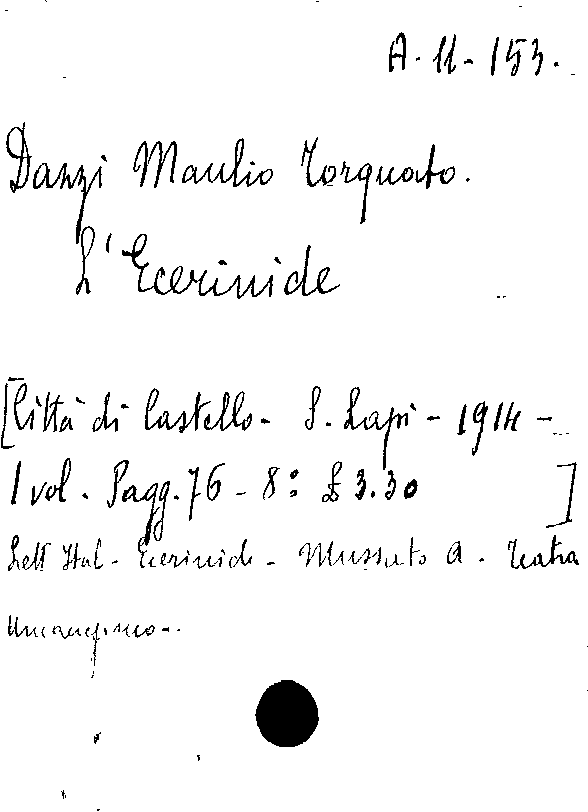 A. 11 - 153.
Dazzi Manlio Torquato.
L'Ecerinide
[Città di Castello - S. Lapi - 1914 -
1 vol. Pagg. 76 - 8: £ 3.30 ]
Lett Ital - Ecerinide - Mussato A. - Teatro
Umanesimo -